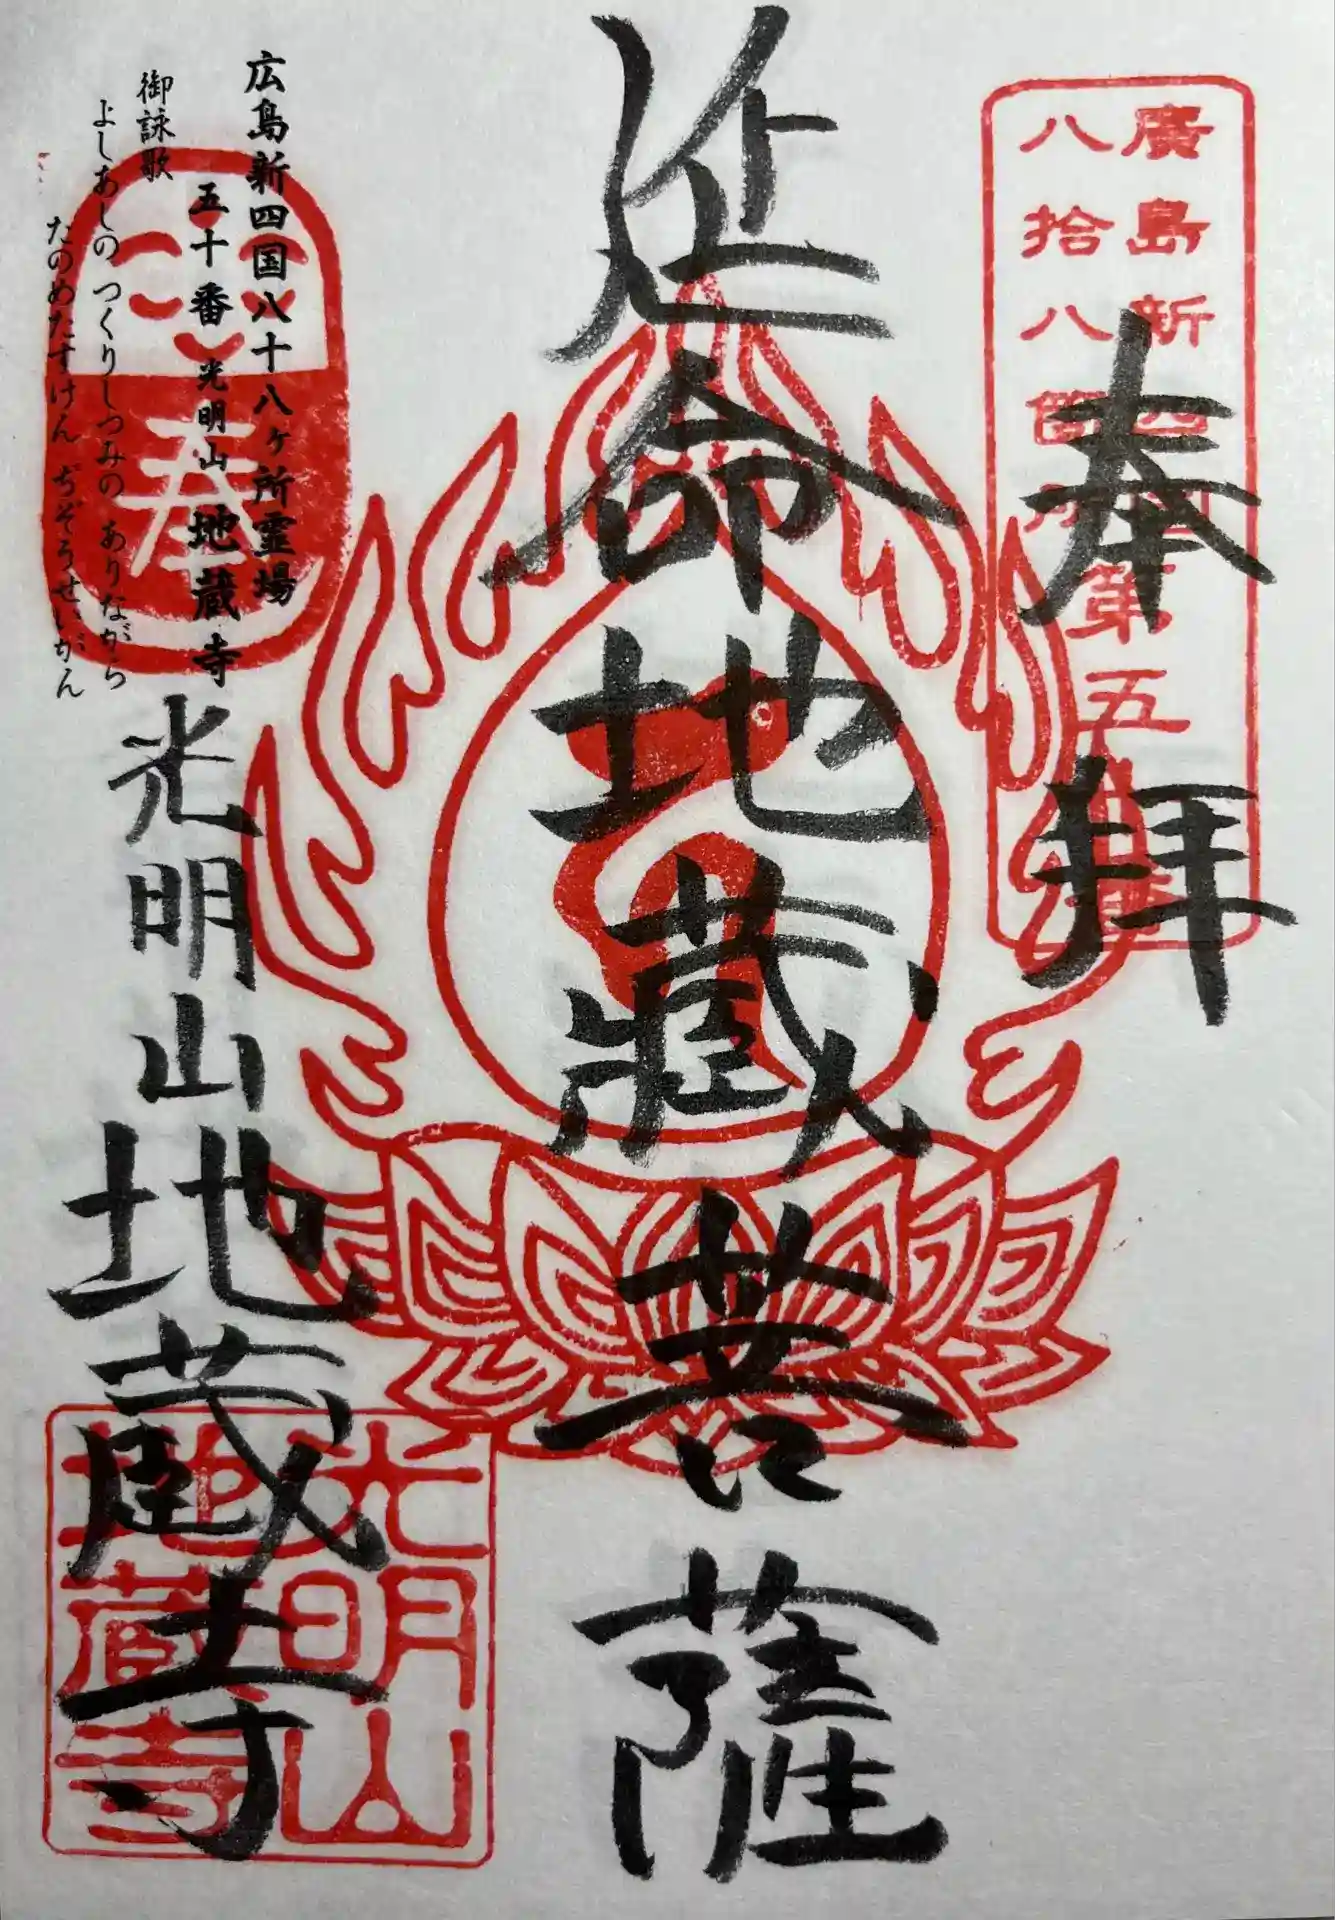 廣島新四國
八拾八箇所
第五十番
奉拝
延命地蔵菩薩
広島新四国八十八ヶ所霊場
五十番 光明山 地蔵寺
御詠歌
よしあしの つくりしつみの ありながら
たのめたすけん ぢぞうせいがん
奉
光明山地蔵寺
光明山
地蔵寺